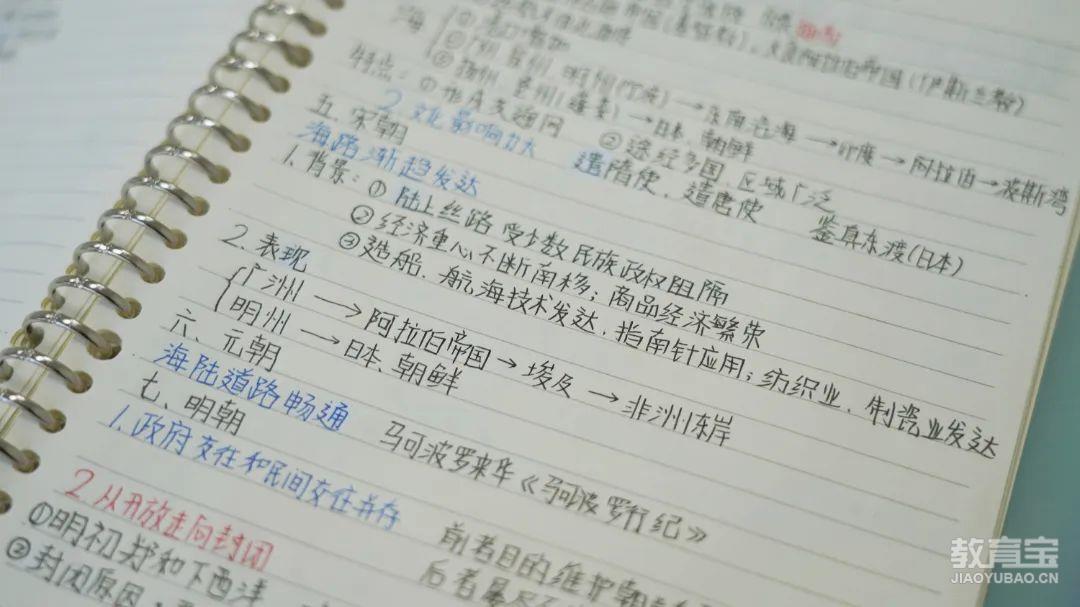 大食阿拉伯帝国(伊斯兰教)
海 ①港口增加
②广州、泉州、明州(宁波)→东南沿海→印度→阿拉伯→波斯湾
③扬州、楚州(淮安)→日本、朝鲜
特点:①形成交通网 ②途经多国,区域广泛
2.文化影响力大 遣隋使、遣唐使 鉴真东渡(日本)
五、宋朝
海路渐趋发达
1.背景:①陆上丝路受少数民族政权阻隔
②经济重心不断南移;商品经济繁荣
③造船、航海技术发达,指南针应用;纺织业、制瓷业发达
2.表现
广州→阿拉伯帝国→埃及→非洲东岸
明州→日本、朝鲜
六、元朝
海陆道路畅通 马可波罗来华《马可波罗行纪》
七、明朝
1.政府交往和民间交往并存
前者目的维护朝
后者
2.从开放走向封闭
①明初郑和下西洋
②封闭原因:
教育宝
JIAOYUBAO.CN